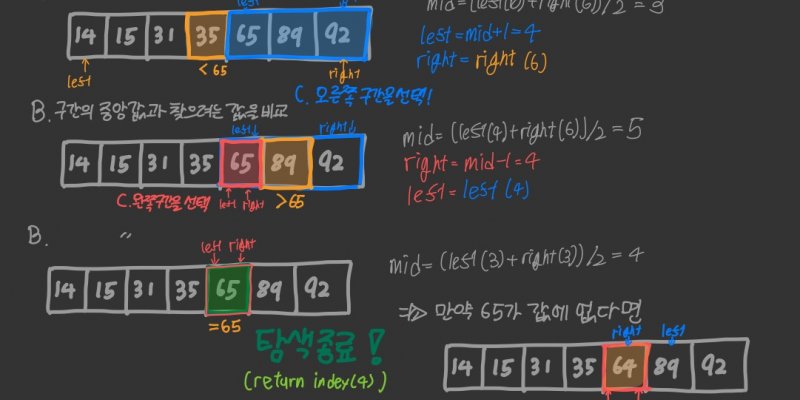 mid=(lest(0)+right(6))/2=3
14 15 31 35 65 89 92
lest
<65
right
lest=mid+1=4
right=right(6)
C. 오른쪽 구간을 선택!
B. 구간의 중앙값과 찾으려는 값을 비교
lest
right
14 15 31 35 65 89 92
C. 왼쪽 구간을 선택
lest right
>65
mid=(lest(4)+right(6))/2=5
right=mid-1=4
lest=lest(4)
B. "
lest right
14 15 31 35 65 89 92
=65
mid=(lest(3)+right(3))/2=4
탐색종료!
(return index(4))
=> 만약 65가 값에 없다면
right lest
14 15 31 35 64 89 92